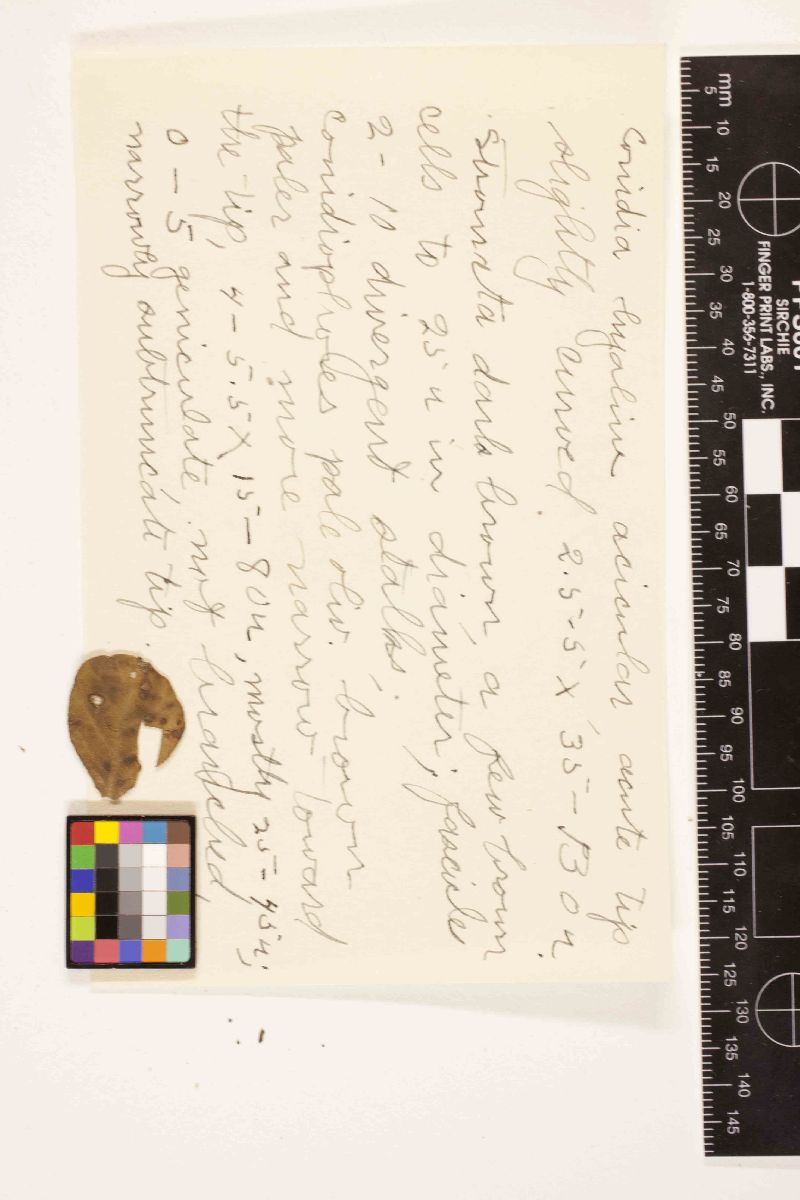 Conidia hyaline acicular acute tip
slightly curved 2.5-5 X 35-130 u.
Stromata dark brown, a few brown
cells to 25 u in diameter; fascicles
2-10 divergent stalks.
Conidiophores pale oliv. brown
paler and more narrow toward
the tip, 4-5.5 X 15-80u, mostly 25-45u;
0-5 geniculate, not branched
narrowly subtruncate tip.
mm
5
10
15
20
25
30
35
40
45
50
55
60
65
70
75
80
85
90
95
100
105
110
115
120
125
130
135
140
145
SIRCHIE
FINGER PRINT LABS., INC.
1-800-356-7311